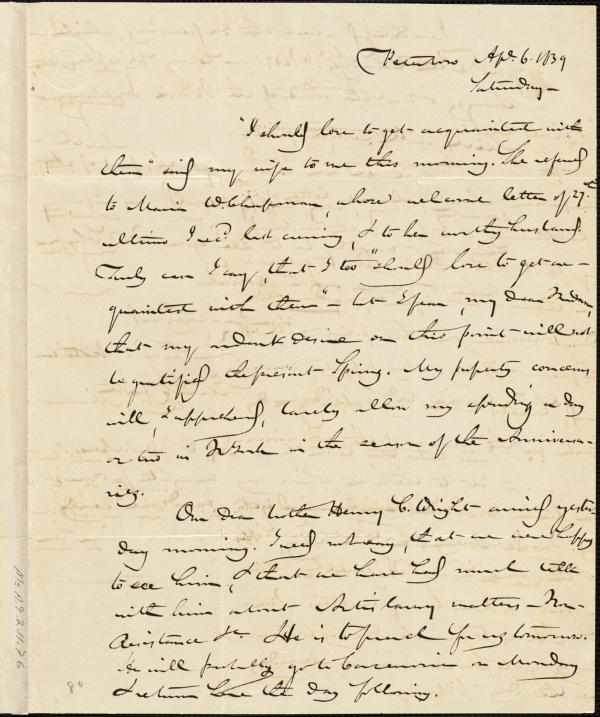 Peterboro Apl. 6. 1839
Saturday -
"I should love to get acquainted with
them" said my wife to me this morning. She refered
to Maria W. Chapman, whose welcome letter of 27th
ultimo I recd. last evening, & to her worthy husband.
Truly can I say, that I too "should love to get ac-
quainted with them" - but I fear, my dear Madam,
that my ardent desire on this point will not
be gratified the present Spring. My property concerns
will, I apprehend, barely allow my spending a day
or two in N York in the season of the Anniversa-
ries.
Our dear brother Henry C. Wright arrived yester-
day morning. I need not say, that we were happy
to see him, & that we have had much talk
with him about Antislavery matters - Non-
Resistance &c. He is to preach for us tomorrow.
He will probably go to Cazenovia on Monday
& return here the day following.